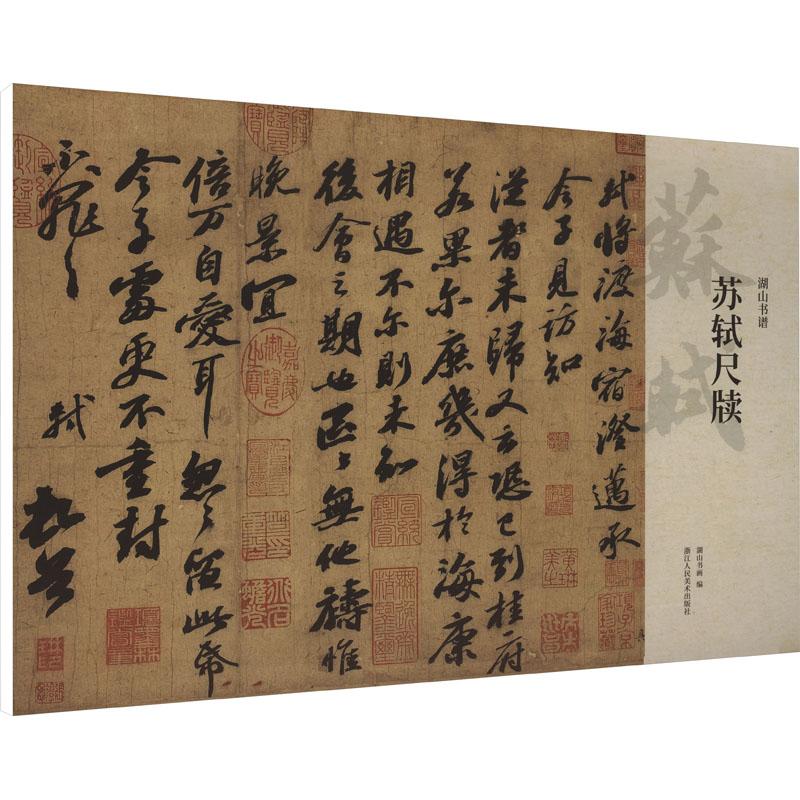 湖山书谱
苏轼尺牍
蘇軾
湖山书画 编
浙江人民美术出版社
軾將渡海宿澄邁承
令子見訪知
從者未歸又云恐已到桂府
若果爾庶幾得於海康
相遇不爾則未知
後會之期也區々無他禱惟
晚景宜
倍万自愛耳怱々留此帋
令子處更不重封
不罪々
軾 頓首
嘉慶御覽之寶